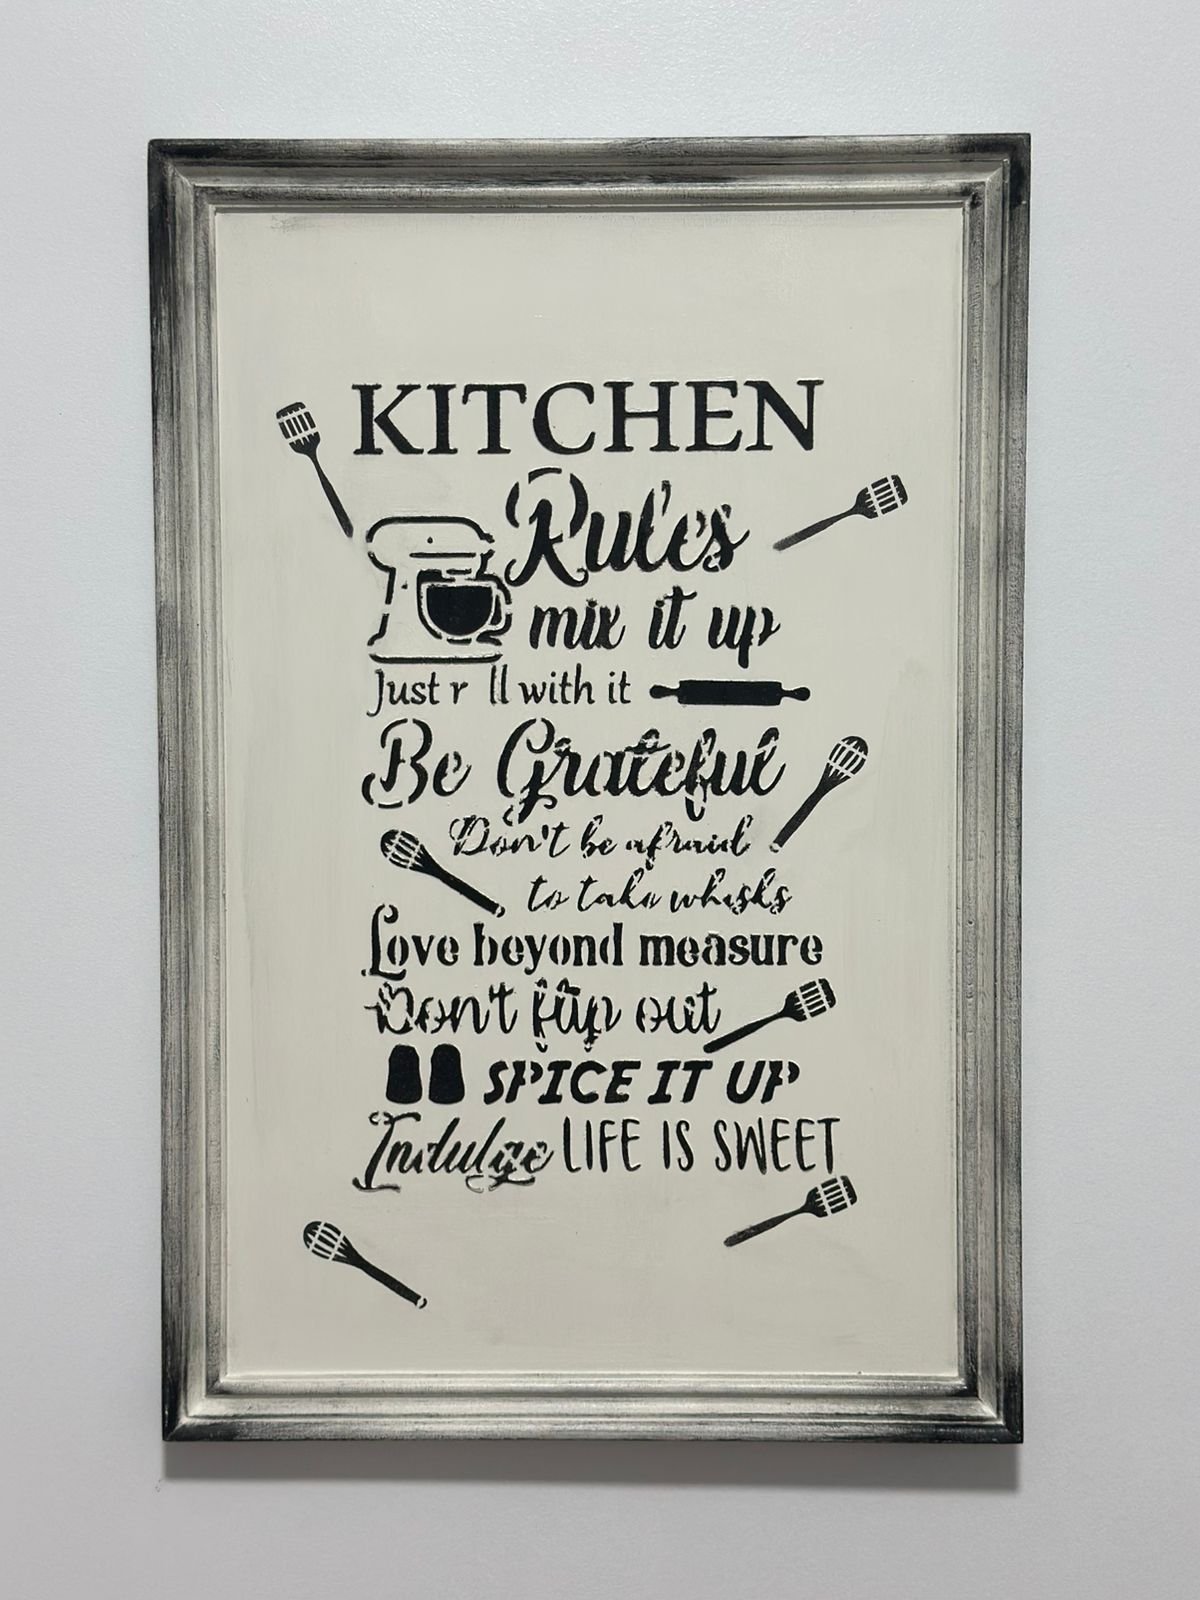 KITCHEN
Rules
mix it up
Just r ll with it
Be Grateful
Don't be afraid
to take whisks
Love beyond measure
Don't flip out
SPICE IT UP
Indulge LIFE IS SWEET